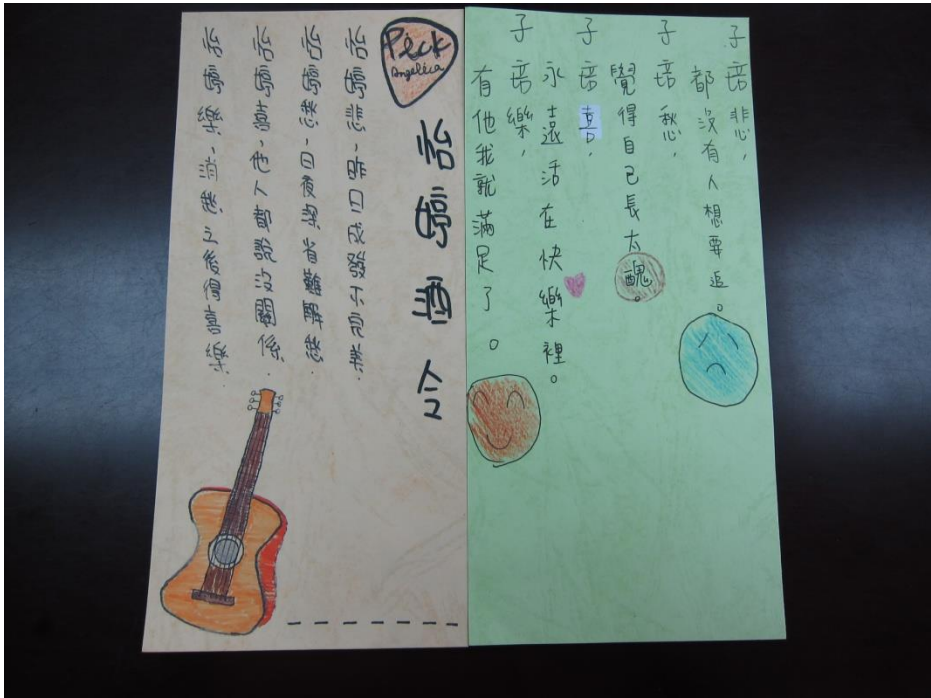 子培悲，
都沒有人想要追。
子培愁，
覺得自己長太醜。
子培喜，
永遠活在快樂裡。
子培樂，
有他我就滿足了。
Pick
Angelica
怡婷酒令
怡婷悲，昨日成發不完美．
怡婷愁，日夜深省難解愁．
怡婷喜，他人都說沒關係．
怡婷樂，消愁之後得喜樂．